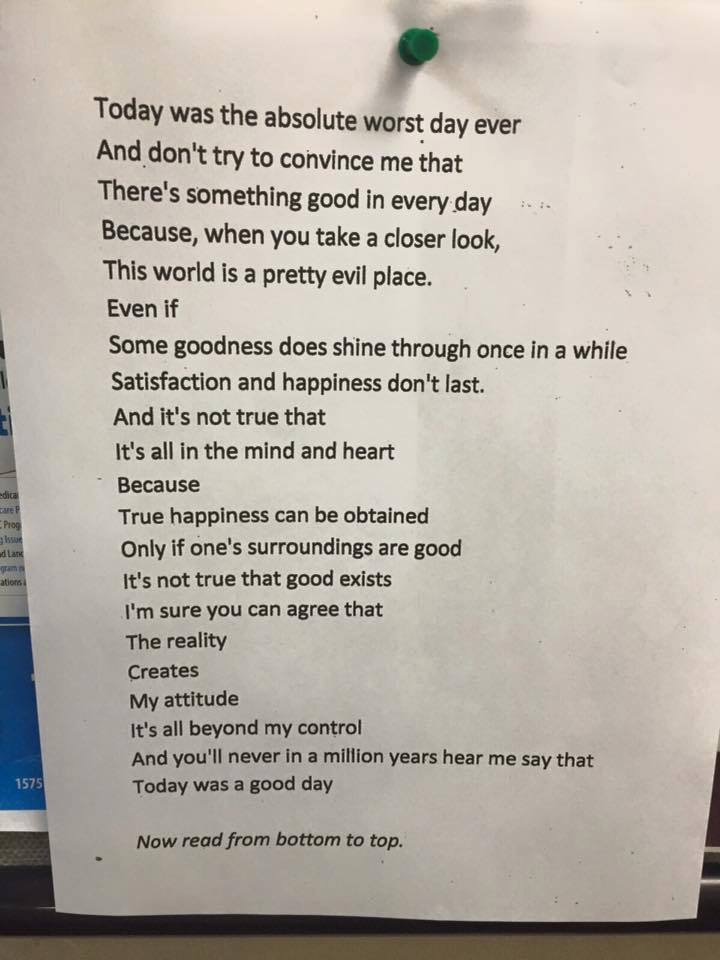 Today was the absolute worst day ever
And don't try to convince me that
There's something good in every day
Because, when you take a closer look,
This world is a pretty evil place.
Even if
Some goodness does shine through once in a while
Satisfaction and happiness don't last.
And it's not true that
It's all in the mind and heart
Because
True happiness can be obtained
Only if one's surroundings are good
It's not true that good exists
I'm sure you can agree that
The reality
Creates
My attitude
It's all beyond my control
And you'll never in a million years hear me say that
Today was a good day
Now read from bottom to top.
1575